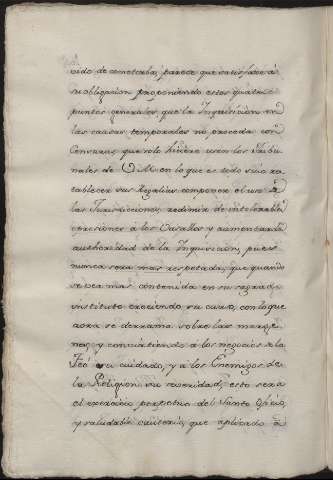 cido de consulta, parece que satisface à
su obligacion proponiendo estos quatro
puntos generales, que la Inquisicion en
las causas temporales no proceda con
Censuras, que solo hiciere usen los Tribu-
nales de V.M. en lo que es todo suio resta
tablecer sus Regalias componer el uso de
las Jurisdicciones, redimir de intolerables
opresiones à los Vasallos y aumentar la
authoridad de la Inquisicion, pues
nunca sera mas respetada, que quando
se vea mas contenida en su sagrado
instituto creciendo su curso, con lo que
aora se derrama sobre las marge-
nes, y convirtiendo à los negocios de la
Feé su cuidado, y a los Enemigos de
la Religion su severidad, esto sera
el exercicio perpetuo del Santo Oficio,
y saludable cauterio, que aplicado à